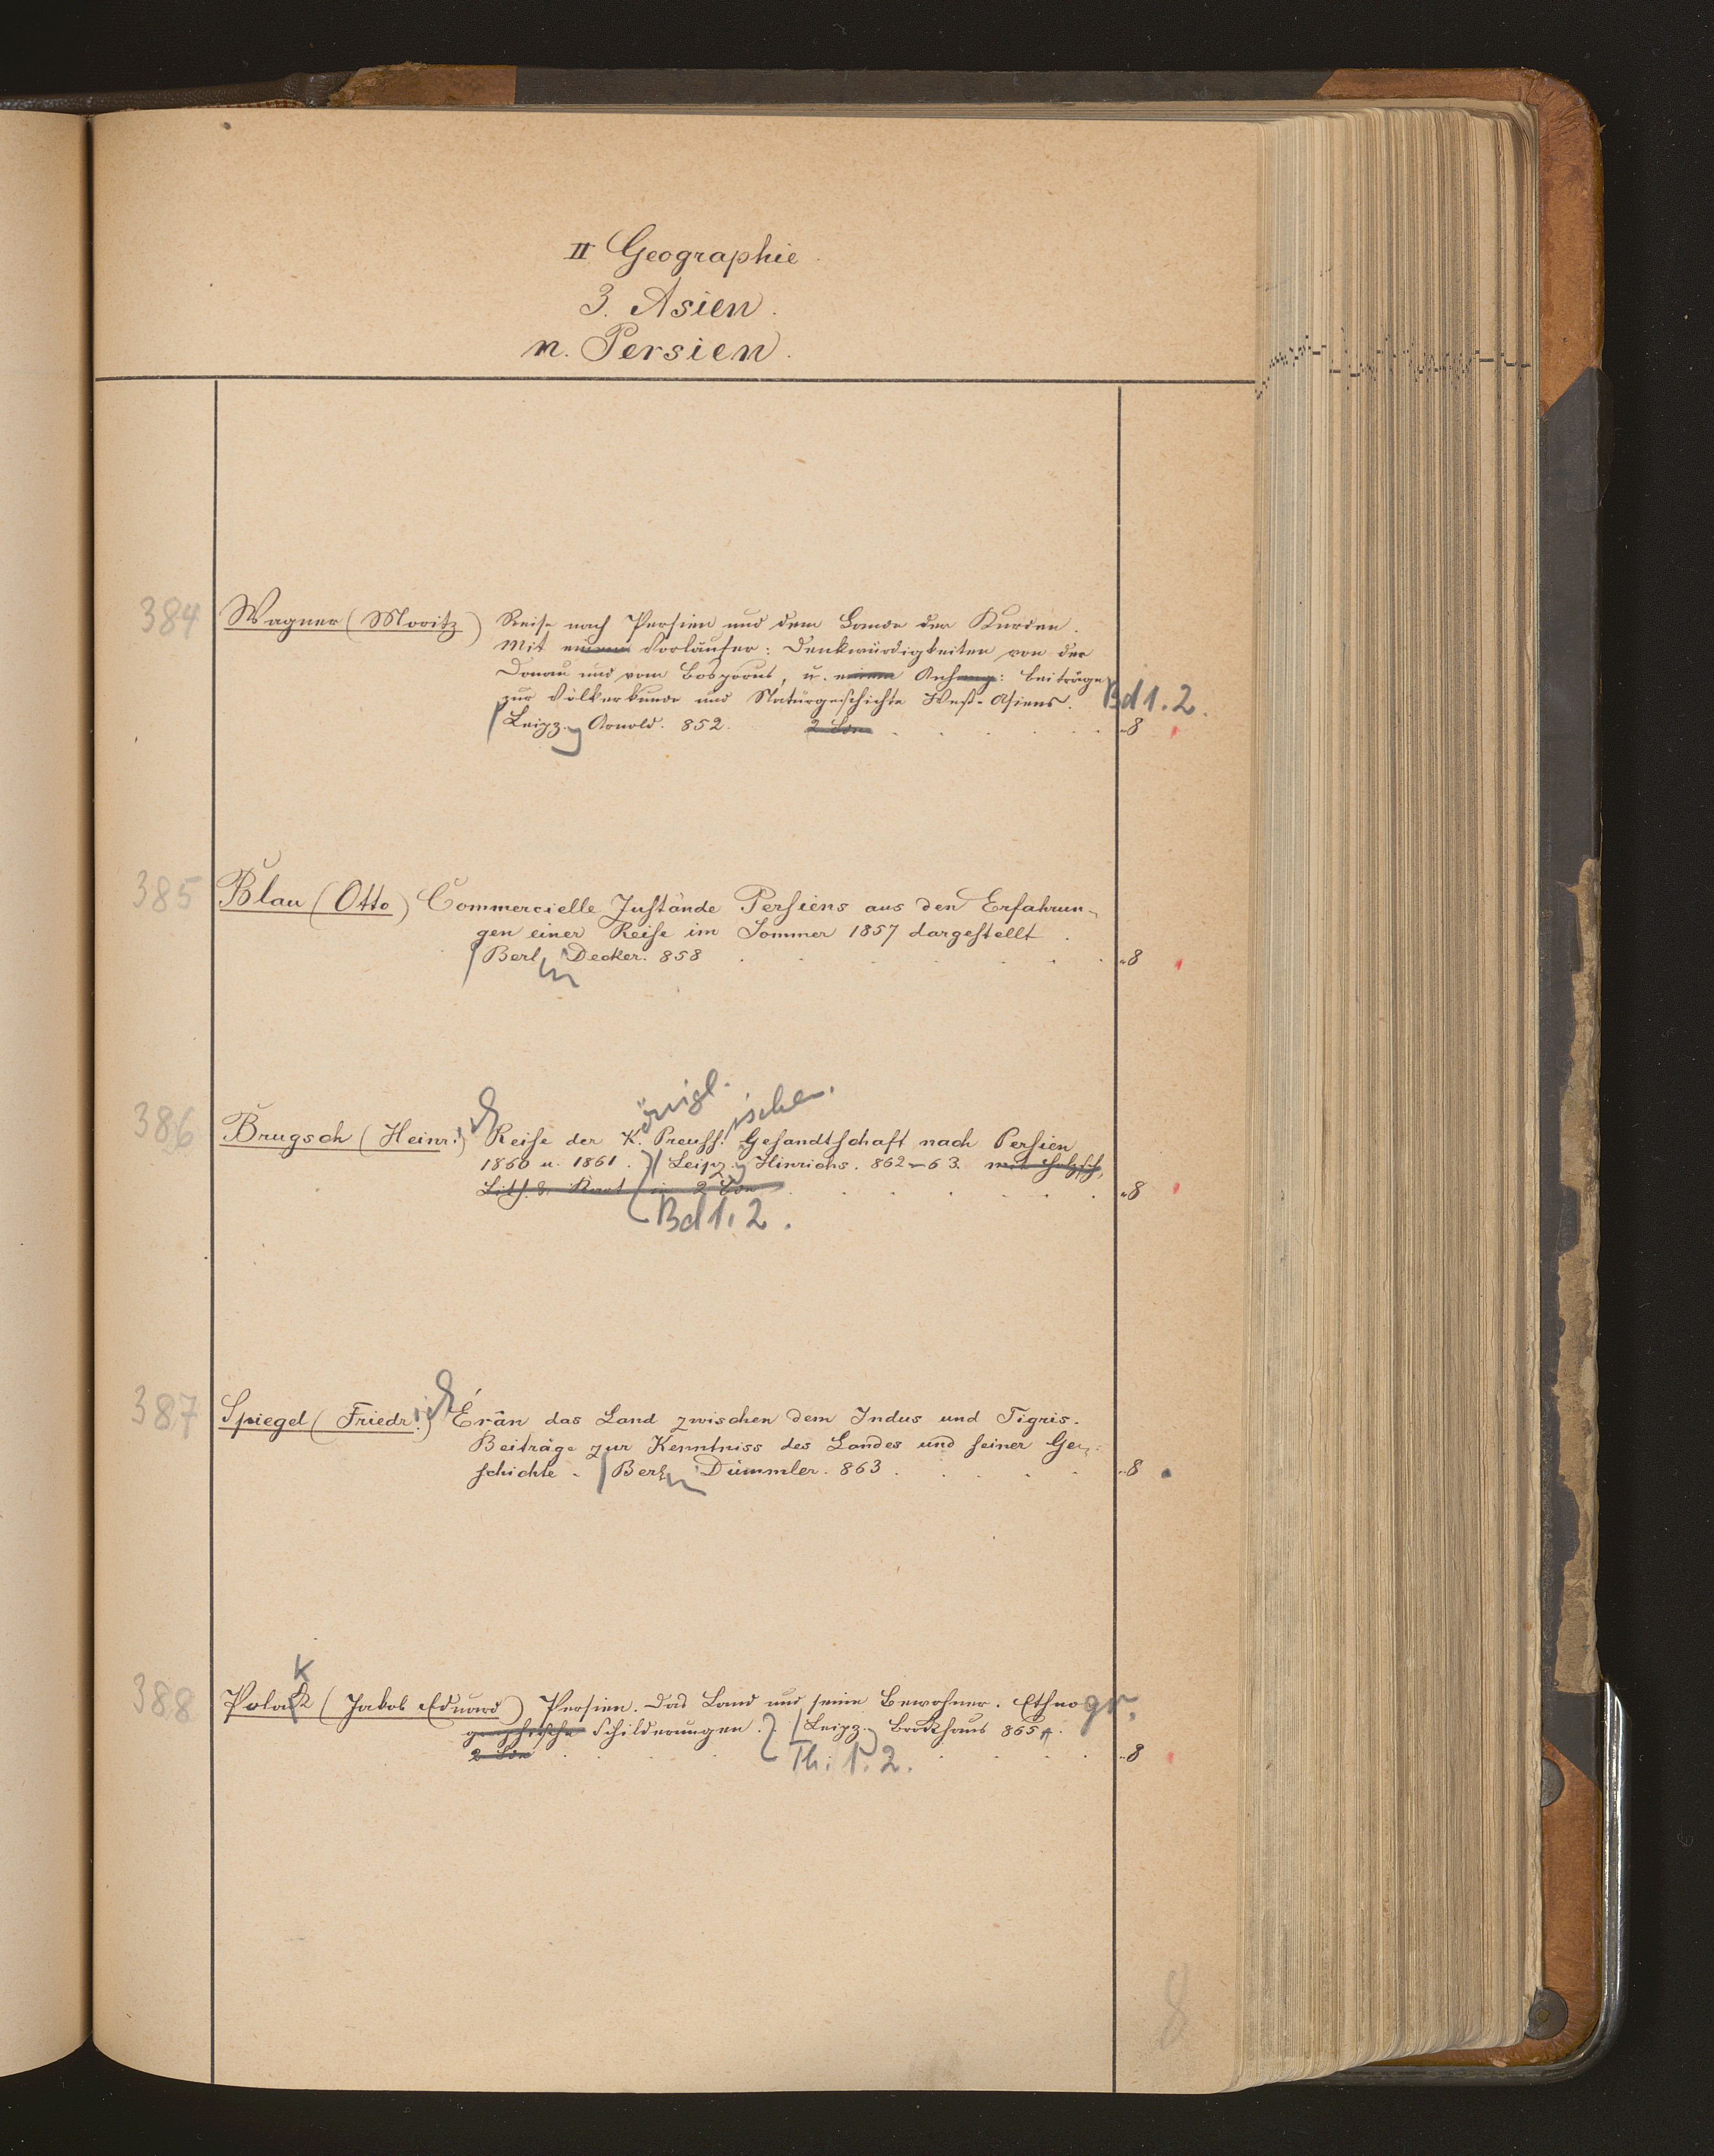 II Geographie.
3. Asien.
n. Persien.
384 Wagner (Moritz) Reise nach Persien und dem Lande der Kurden.
Mit einem Vorläufer: Denkwürdigkeiten von der
Donau und vom Bosporus, u. einem Anhang: Beiträge
zur Völkerkunde und Naturgeschichte West-Asiens. Bd 1. 2.
Leipz. Arnold. 852. 2 Bde 8
385 Blau (Otto) Commercielle Zustände Persiens aus den Erfahrun-
gen einer Reise im Sommer 1857 dargestellt.
Berlin Decker. 858 8
önigl. ischen.
386 Brugsch (Heinrich) Reise der K. Preuss. Gesandtschaft nach Persien
1860 u. 1861. Leipz. Hinrichs. 862–63. mit Holzsch,
Lith. & Kart in 2 Bde 8
Bd 1. 2.
387 Spiegel (Friedrich) Érân das Land zwischen dem Indus und Tigris.
Beiträge zur Kenntniss des Landes und seiner Ge-
schichte. Berlin Dümmler. 863. 8
k
388 Polak (Jakob Eduard) Persien. Das Land und seine Bewohner. Ethnogr.
graphische Schilderungen. Leipz. Brockhaus 865.
2 Bde 8
Th. 1. 2.
8